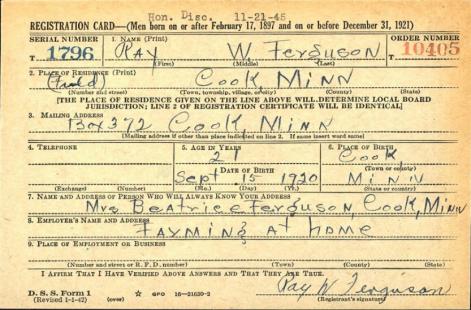 Hon. Disc. 11-21-45
REGISTRATION CARD—(Men born on or after February 17, 1897 and on or before December 31, 1921)
SERIAL NUMBER 1. NAME (Print) ORDER NUMBER
T 1796 Ray W. Ferguson T 10405
(First) (Middle) (Last)
2. PLACE OF RESIDENCE (Print)
Cook, Minn
(Number and street) (Town, township, village, or city) (County) (State)
[THE PLACE OF RESIDENCE GIVEN ON THE LINE ABOVE WILL DETERMINE LOCAL BOARD
JURISDICTION; LINE 2 OF REGISTRATION CERTIFICATE WILL BE IDENTICAL]
3. MAILING ADDRESS
Box 372 Cook, Minn
(Mailing address if other than place indicated on line 2. If same insert word same)
4. TELEPHONE 5. AGE IN YEARS 6. PLACE OF BIRTH
21 Cook
DATE OF BIRTH (Town or county)
Sept 15 1920 Minn
(Exchange) (Number) (Mo.) (Day) (Yr.) (State or country)
7. NAME AND ADDRESS OF PERSON WHO WILL ALWAYS KNOW YOUR ADDRESS
Mrs Beatrice Ferguson, Cook, Minn
8. EMPLOYER'S NAME AND ADDRESS
Farming at home
9. PLACE OF EMPLOYMENT OR BUSINESS
(Number and street or R. F. D. number) (Town) (County) (State)
I AFFIRM THAT I HAVE VERIFIED ABOVE ANSWERS AND THAT THEY ARE TRUE.
D. S. S. Form 1 Ray W Ferguson
(Revised 1-1-42) (over) ☆ GPO 16-21630-2 (Registrant's signature)